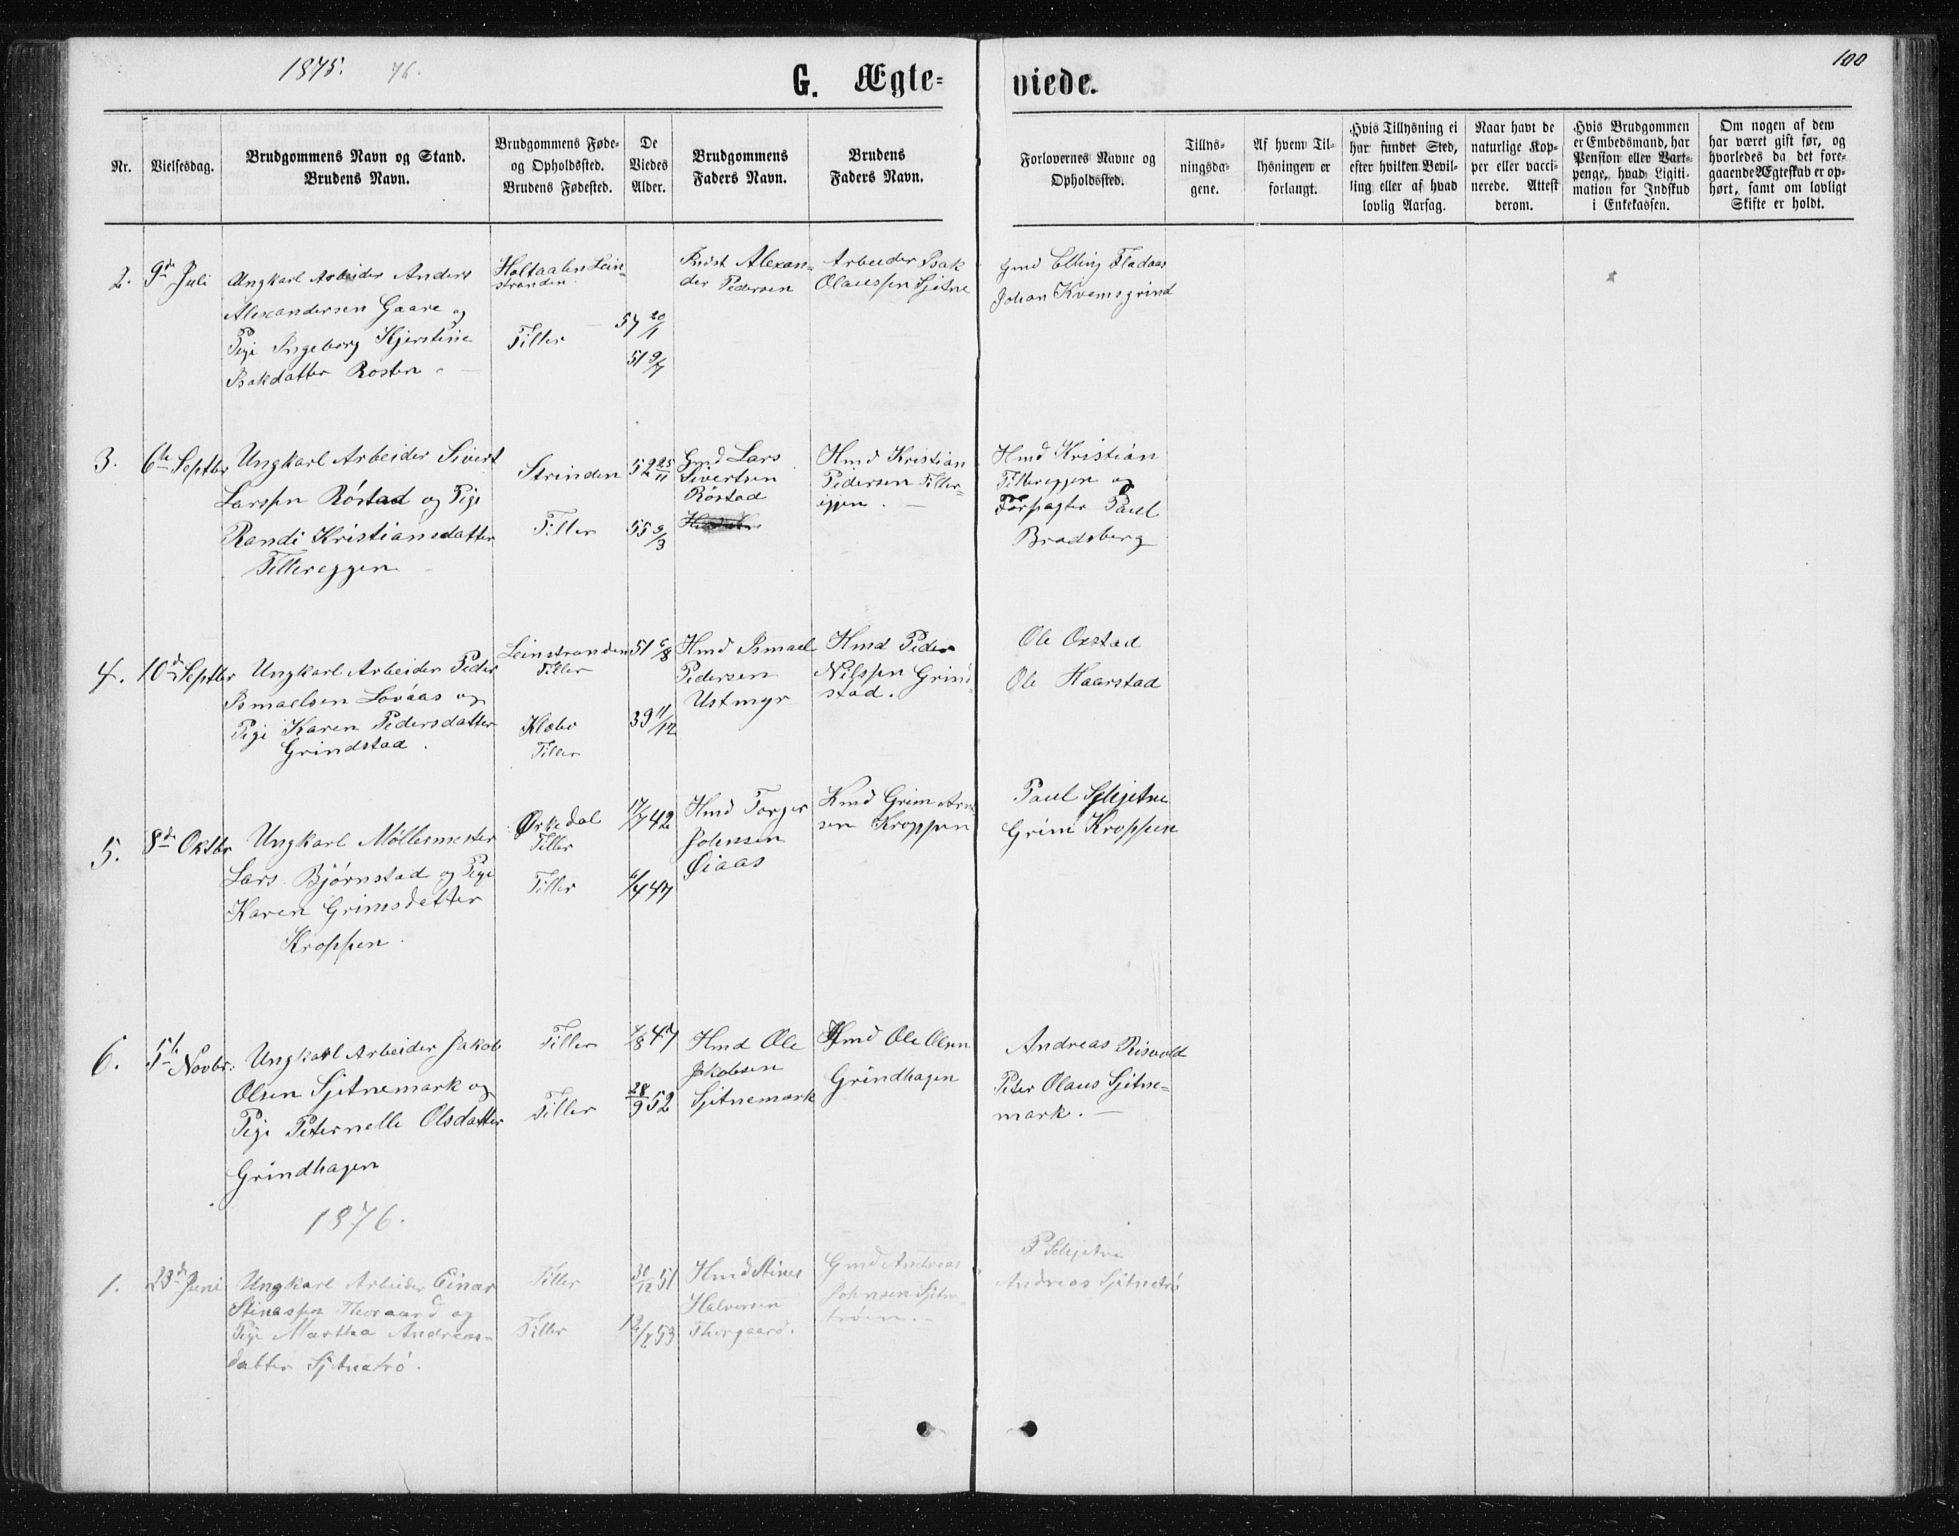 1875. 76.
G. Ægte-
viede.
100
Nr.
Vielsesdag.
Brudgommens Navn og Stand.
Brudens Navn.
Brudgommens Føde-
og Opholdssted.
Brudens Fødested.
De
Viedes
Alder.
Brudgommens
Faders Navn.
Brudens
Faders Navn.
Forlovernes Navne og
Opholdssted.
Tillys-
ningsda-
gene.
Af hvem Til-
lysningen er
forlangt.
Hvis Tillysning ei
har fundet Sted,
efter hvilken Bevil-
ling eller af hvad
lovlig Aarsag.
Naar havt de
naturlige Kop-
per eller vacci-
nerede. Attest
derom.
Hvis Brudgommen
er Embedsmand, har
Pension eller Vart-
penge, hvad Ligiti-
mation for Indskud
i Enkekassen.
Om nogen af dem
har været gift før, og
hvorledes da det fore-
gaaende Ægteskab er op-
hørt, samt om lovligt
Skifte er holdt.
2.
9de Juli
Ungkarl Arbeider Anders
Alexandersen Gaare og
Pige Ingeborg Kjerstine
Isakdatter Rosten
Holtaalen Lein-
stranden
Tiller
57 20/1
51 9/7
Alexan-
der Pedersen
Arbeider Isak
Olaussen Sjetne
Gmd Elling Fladaas
Johan Kvemsgrind
3.
6te Septbr
Ungkarl Arbeider Sivert
Larssen Røstad og Pige
Randi Kristiansdatter
Tillereggen
Strinden
Tiller
52 25/11
55 9/3
Gmd Lars
Sivertsen
Røstad
Hmd Kristian
Pedersen Tiller-
eggen.
Hmd Kristian
Tillereggen og
Forpagter Paul
Bradsberg
4.
10de Septbr
Ungkarl Arbeider Peder
Ismaelsen Lovaas og
Pige Karen Pedersdatter
Grindstad.
Leinstranden
Tiller
Klæbo
Tiller
51 6/8
39 11/12
Hmd Ismael
Pedersen
Ustmyr
Hmd Peder
Nilssen Grind-
stad.
Ole Oxstad
Ole Haarstad
5.
8de Oktbr
Ungkarl Møllermester
Lars Bjørnstad og Pige
Karen Grimsdatter
Kroppen.
Ørkedal
Tiller
Tiller
17/7 42
6/4 47
Hmd Torger
Johnsen
Øiaas
Hmd Grim Arn
sen Kroppen
Paul Schjetne
Grim Kroppen
6.
5te Novbr:
Ungkarl Arbeider Jakob
Olsen Sjetnemark og
Pige Peternelle Olsdatter
Grindhagen
Tiller
Tiller
7/8 47
28/9 52
Hmd Ole
Jakobsen
Sjetnemark
Hmd Ole Olsen
Grindhagen
Andreas Risvold
Peter Olaus Sjetne-
mark.
1876.
1.
23de Juni
Ungkarl Arbeider Einar
Stinessen Thoraard og
Pige Martha Andreas-
datter Sjetnetrø.
Tiller
Tiller
30/12 51
53
Hmd Stines
Halvorsen
Thorgaard.
Gmd Andreas
Johnsen Sjetne-
trøen.
P Schjetne
Andreas Sjetnetrø